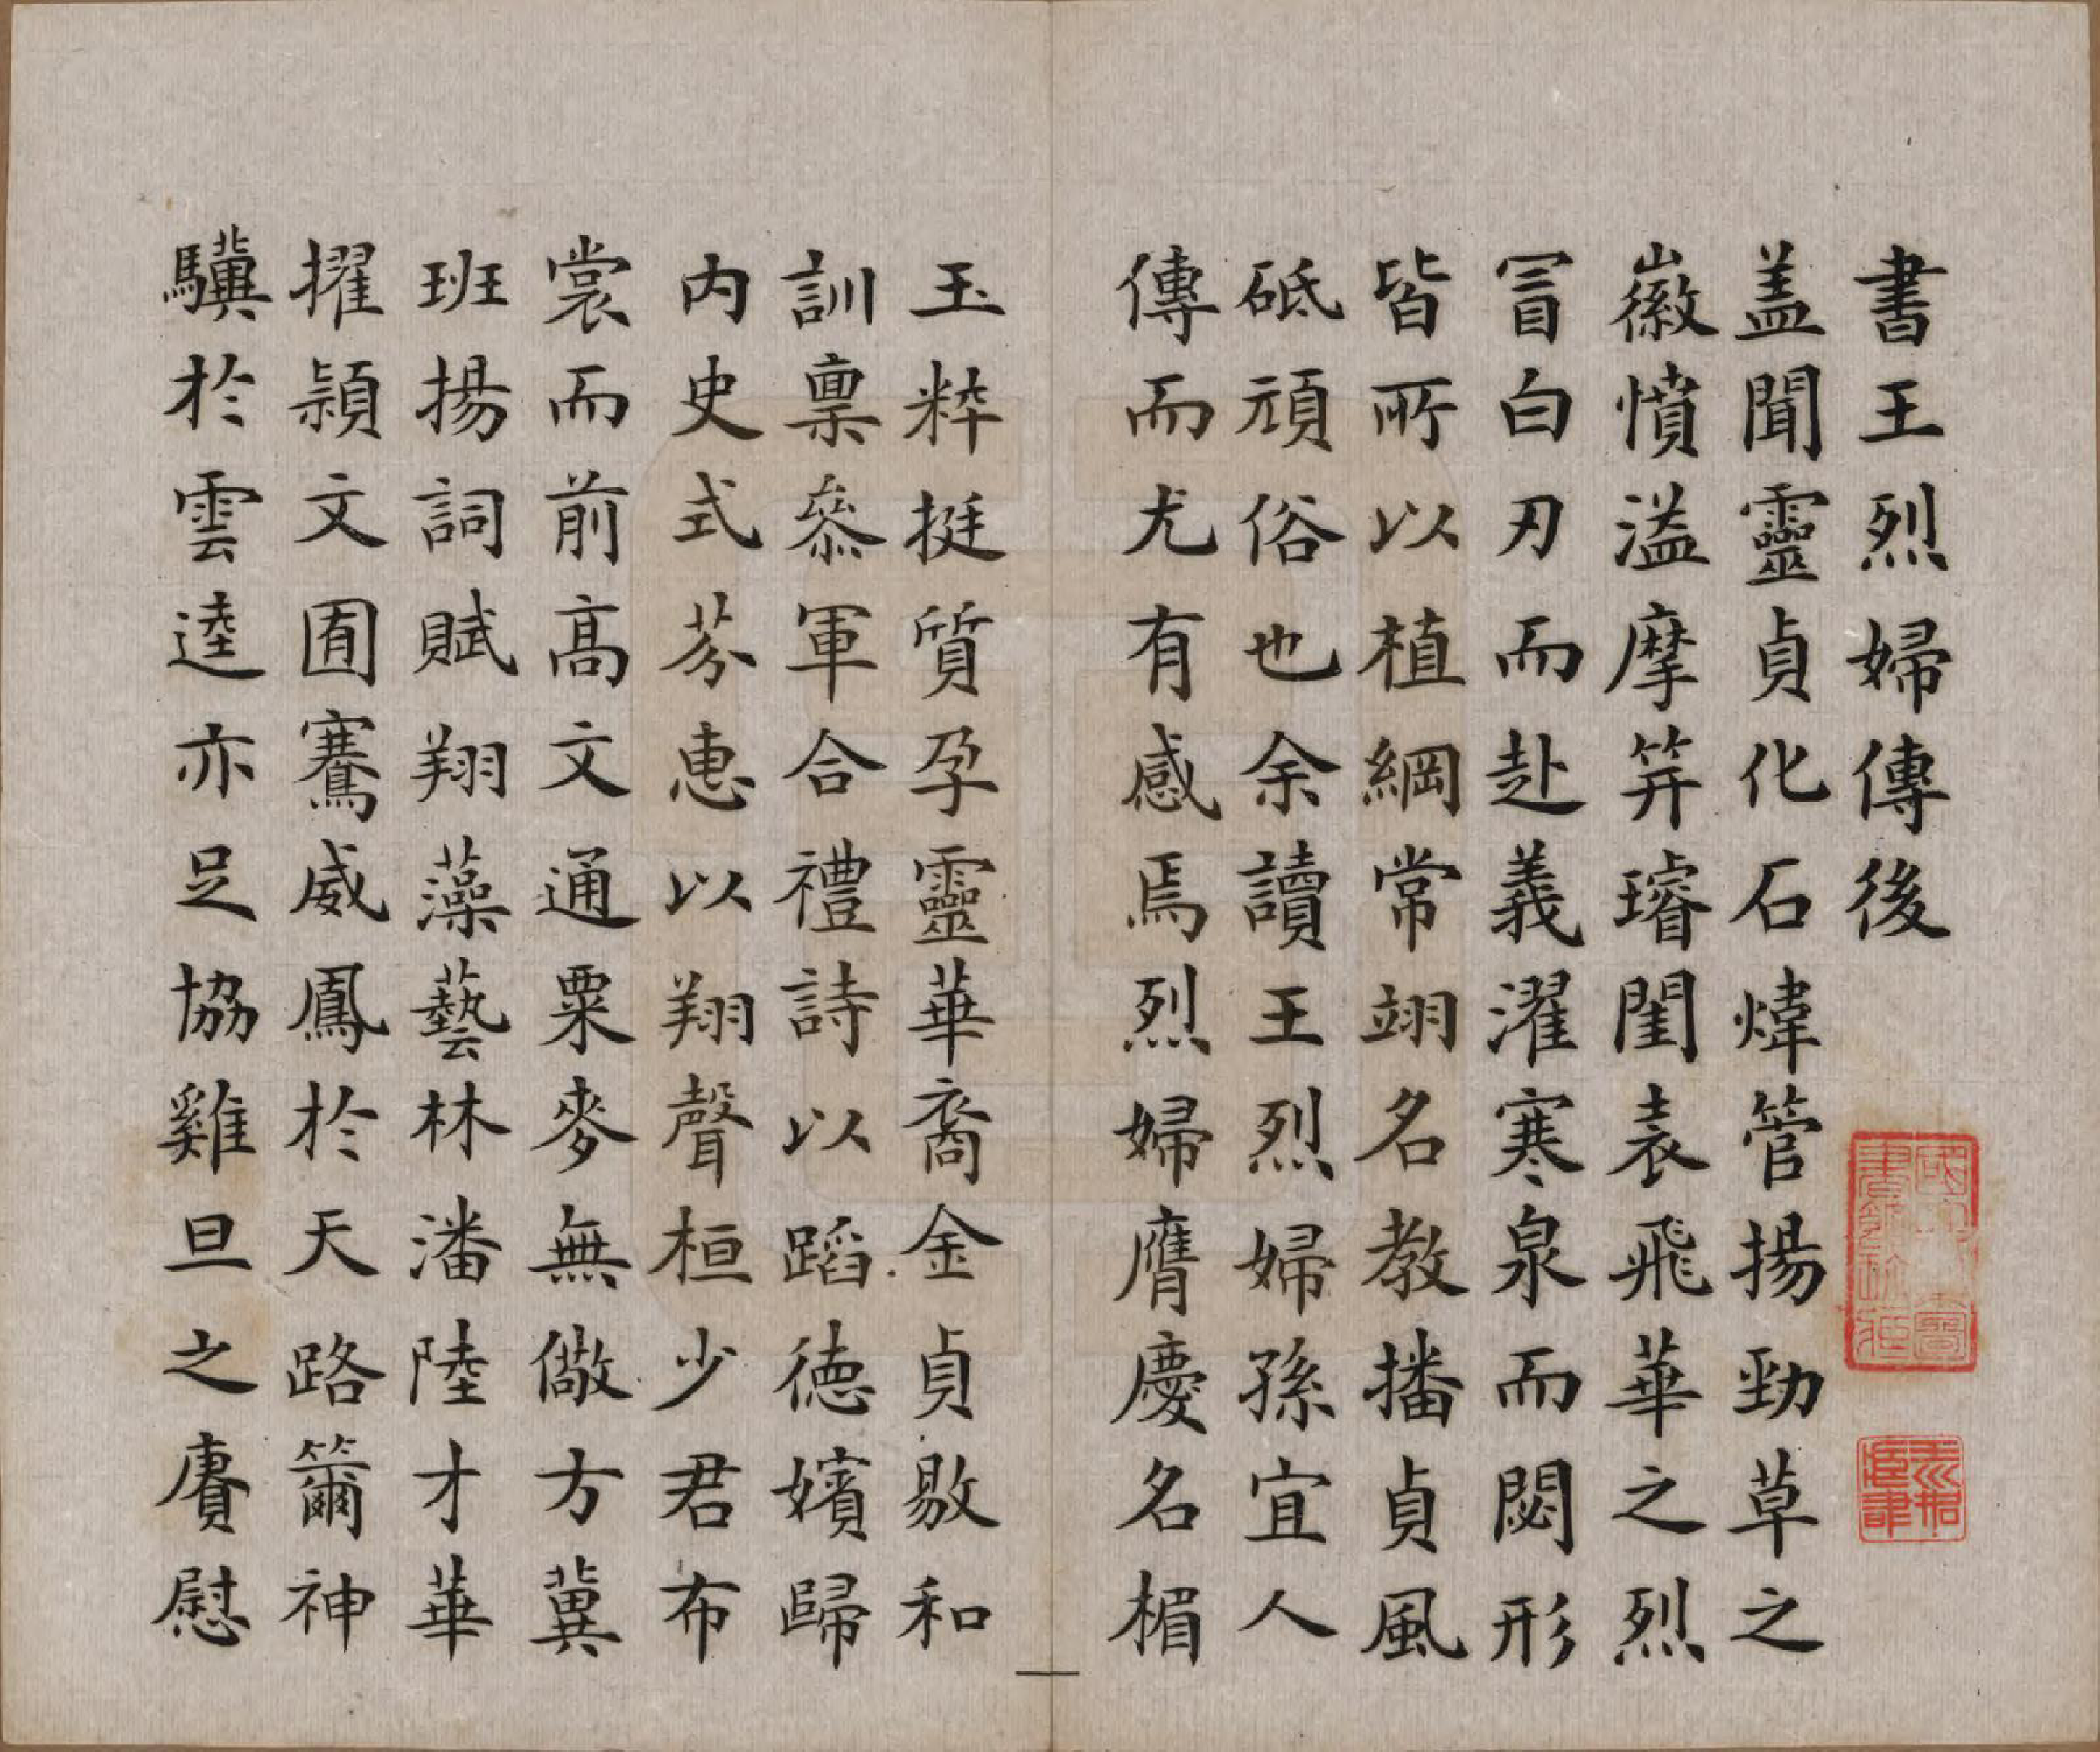 書王烈婦傳後
盖聞靈貞化石煒管揚勁草之
徽憤溢摩笄璿閨表飛華之烈
冒白刃而赴義濯寒泉而閟形
皆所以植綱常翊名教播貞風
砥頑俗也余讀王烈婦孫宜人
傳而尤有感焉烈婦膺慶名楣
玉粹挺質孕靈華裔金貞敭和
訓稟叅軍合禮詩以蹈德嬪歸
内史式芬惠以翔聲桓少君布
裳而前高文通粟麥無儆方冀
班揚詞賦翔藻藝林潘陸才華
擢穎文囿騫威鳳於天路籋神
驥於雲逵亦足協雞旦之賡慰